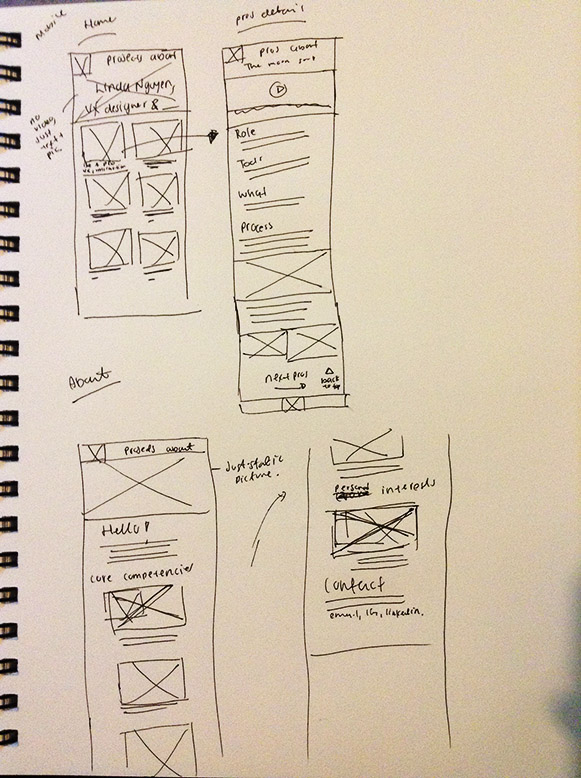 Mobile
Home
projects about
Linda Nguyen,
UX designer &
no
video,
just
text +
pic.
proj details
proj about
The main
Role
Tools
What
Process
next proj
back
to top
About
projects about
Just static
picture.
Hello!
core competencies
personal
interests
Contact
email, IG, linkedin.